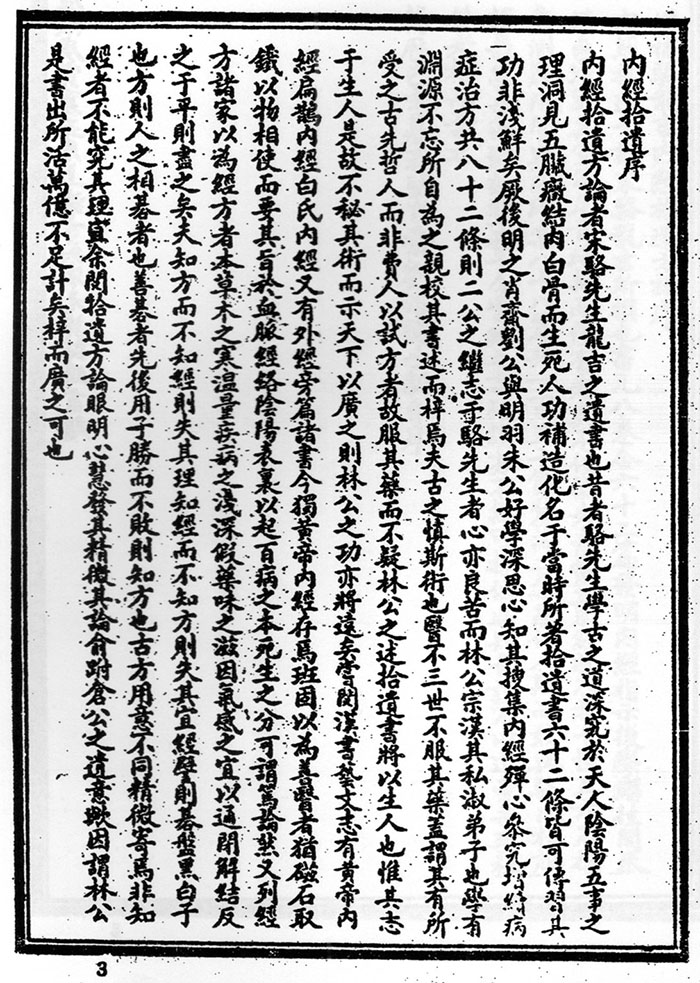 內經拾遺序
內經拾遺方論者宋駱先生龍吉之遺書也昔者駱先生學古之道深究於天人陰陽五事之
理洞見五臟癥結肉白骨而生死人功補造化名于當時所著拾遺書六十二條皆可傳習其
功非淺鮮矣厥後明之肖齋劉公與明羽朱公好學深思心知其搜集內經殫心參究增續病
症治方共八十二條則二公之繼志于駱先生者心亦良苦而林公宗漢其私淑弟子也學有
淵源不忘所自為之親校其書述而梓焉夫古之慎斯術也醫不三世不服其藥蓋謂其有所
受之古先哲人而非費人以試方者故服其藥而不疑林公之述拾遺書將以生人也惟其志
于生人是故不秘其術而示天下以廣之則林公之功亦將遠矣嘗閱漢書藝文志有黃帝內
經扁鵲內經白氏內經又有外經旁篇諸書今獨黃帝內經存焉班固以為善醫者猶磁石取
鐵以物相使而要其旨於血脈經絡陰陽表裏以起百病之本死生之分可謂篤論然又列經
方諸家以為經方者本草木之寒温量疾病之淺深假藥味之滋因氣感之宜以通閉解結反
之于平則盡之矣夫知方而不知經則失其理知經而不知方則失其宜經歷則碁盤黑白子
也方則人之相碁者也善碁者先後用子勝而不敗則知方也古方用意不同精微寄焉非知
經者不能究其理真余閱拾遺方論眼明心慧發其精微其論俞跗倉公之遺意歟因謂林公
是書出所活萬億不足計矣梓而廣之可也
3